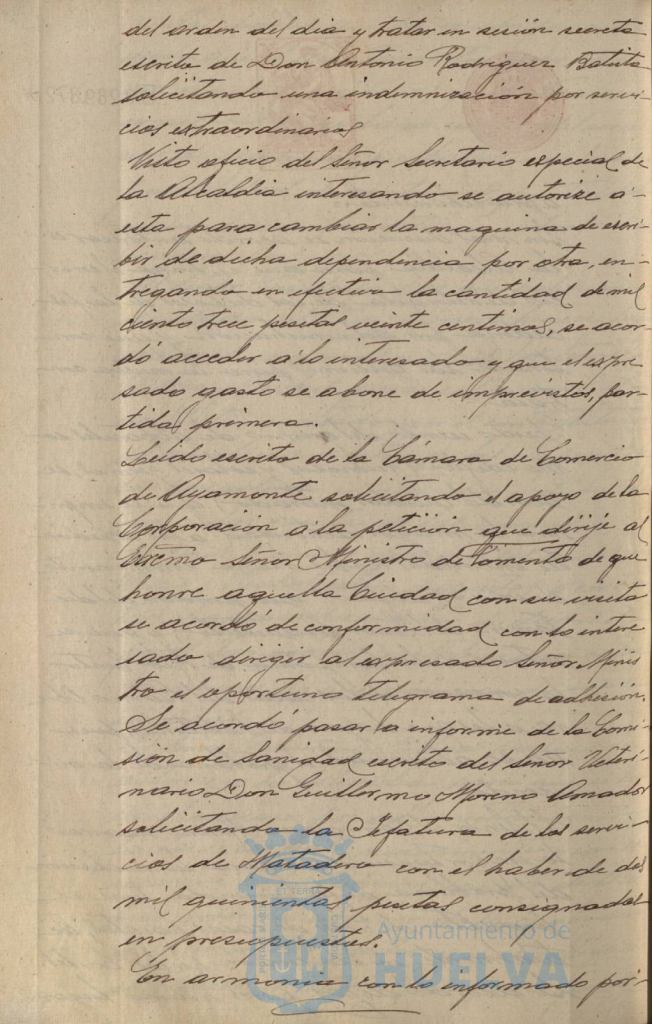 del orden del dia y tratar en sesión secreta
escrito de Don Antonio Rodriguez Batista
solicitando una indemnización por servi-
cios extraordinarios
Visto oficio del Señor Secretario especial de
la Alcaldia interesando se autorize á
esta para cambiar la maquina de escri-
bir de dicha dependencia por otra, en-
tregando en efectivo la cantidad de mil
ciento trece pesetas veinte centimos, se acor-
dó acceder á lo interesado y que el expre
sado gasto se abone de imprevistos, par-
tida primera.
Leido escrito de la Cámara de Comercio
de Ayamonte solicitando el apoyo de la
Corporación á la petición que dirije al
Excmo Señor Ministro de Fomento de que
honre aquella Ciudad con su visita
se acordó de conformidad con lo intere
sado dirigir al expresado Señor Minis
tro el oportuno telegrama de adhesión.
Se acordó pasar a informe de la Comi-
sión de Sanidad escrito del Señor Veteri-
nario Don Guillermo Moreno Amador
solicitando la Jefatura de los servi-
cios de Matadero con el haber de dos
mil quinientas pesetas consignadas
en presupuestos.
En armonia con lo informado por
Ayuntamiento de
HUELVA